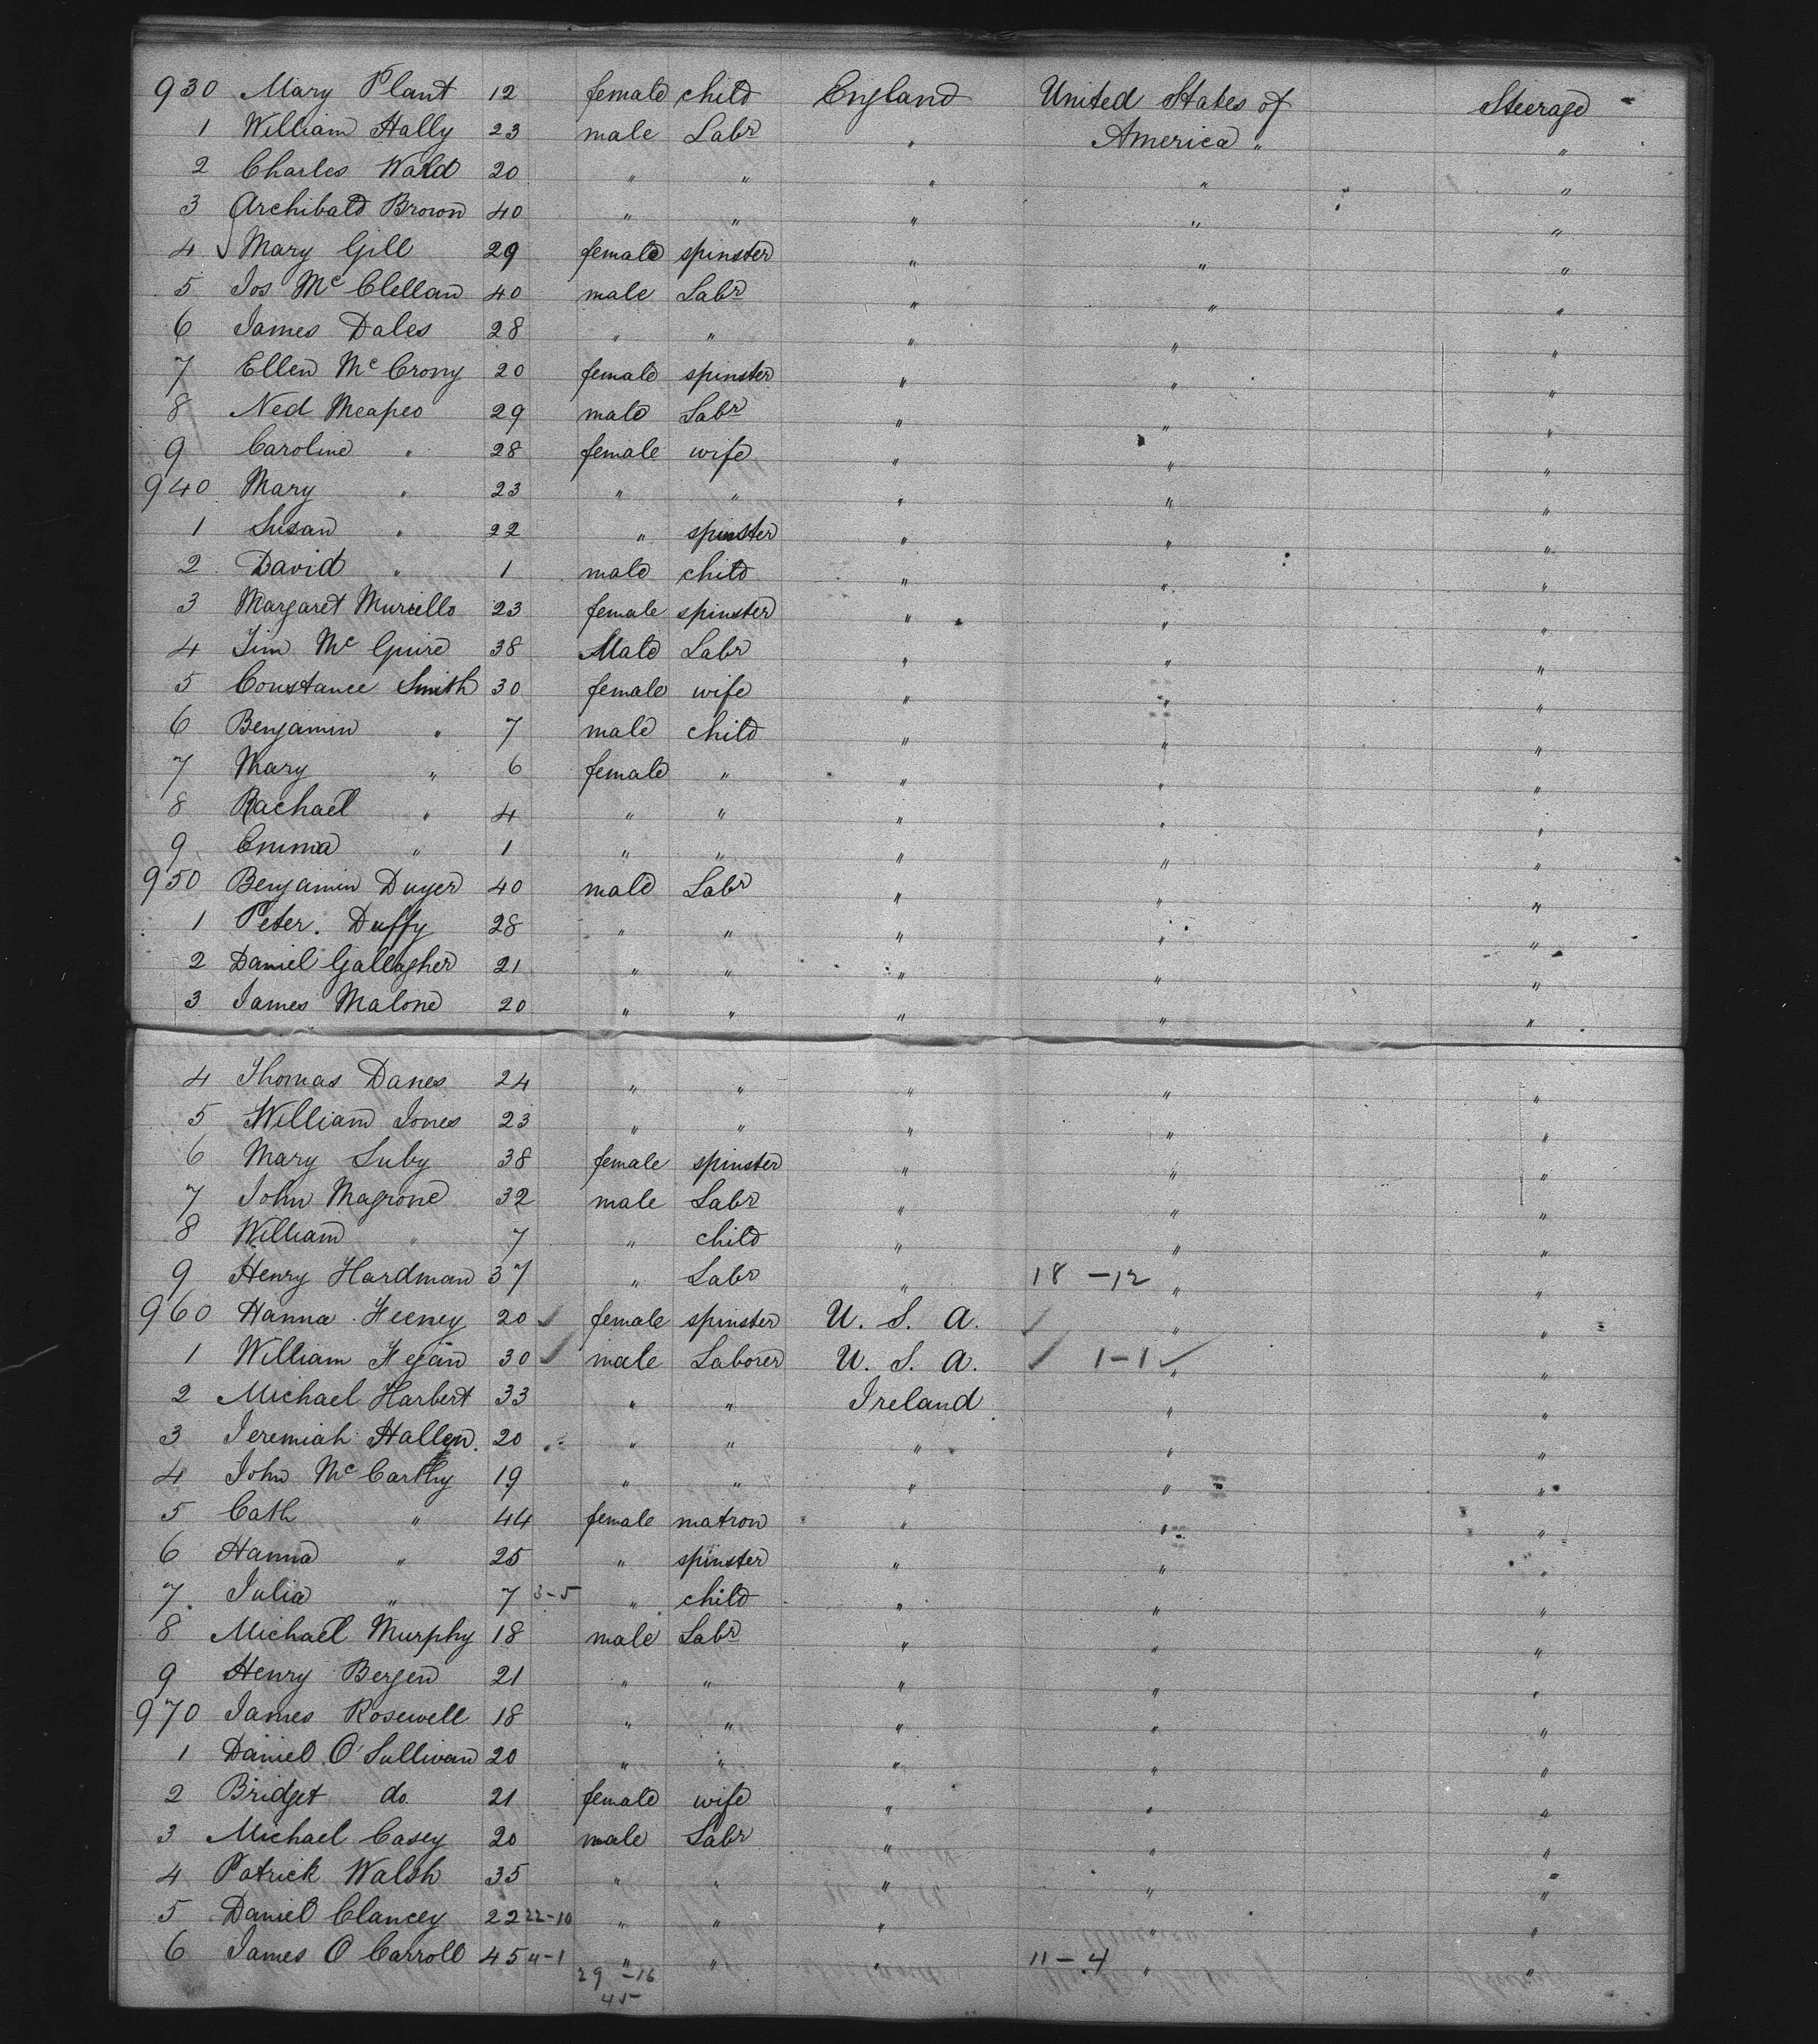 930 Mary Plant 12 female child England United States of Steerage
1 William Hally 23 male Labr " America " "
2 Charles Ward 20 " " " " "
3 Archibald Brown 40 " " " " "
4 Mary Gill 29 female spinster " " "
5 Jos McClellan 40 male Labr " " "
6 James Dales 28 " " " " "
7 Ellen McCrony 20 female spinster " " "
8 Ned Meapes 29 male Labr " " "
9 Caroline " 28 female wife " " "
940 Mary " 23 " " " " "
1 Susan " 22 " spinster " " "
2 David " 1 male child " " "
3 Margaret Muriello 23 female spinster " " "
4 Jim McGuire 38 Male Labr " " "
5 Constance Smith 30 female wife " " "
6 Benjamin " 7 male child " " "
7 Mary " 6 female " " " "
8 Rachael " 4 " " " " "
9 Emma " 1 " " " " "
950 Benjamin Duyer 40 male Labr " " "
1 Peter. Duffy 28 " " " " "
2 Daniel Gallagher 21 " " " " "
3 James Malone 20 " " " " "
4 Thomas Danes 24 " " " " "
5 William Jones 23 " " " " "
6 Mary Luby 38 female spinster " " "
7 John Magrone 32 male Labr " " "
8 William " 7 " child " " "
9 Henry Hardman 37 " Labr " 18 - 12 " "
960 Hanna Feeney 20 ✓ female spinster U. S. A. ✓ " "
1 William Fegan 30 ✓ male Laborer U. S. A. ✓ 1-1 ✓ " "
2 Michael Harbert 33 " " Ireland " "
3 Jeremiah Hallen 20 " " " " "
4 John McCarthy 19 " " " " "
5 Cath " 44 female matron " " "
6 Hanna " 25 " spinster " " "
7 Julia " 7 3-5 " child " " "
8 Michael Murphy 18 male Labr " " "
9 Henry Bergen 21 " " " " "
970 James Rosewell 18 " " " " "
1 Daniel O'Sullivan 20 " " " " "
2 Bridget do. 21 female wife " " "
3 Michael Casey 20 male Labr " " "
4 Patrick Walsh 35 " " " " "
5 Daniel Clancey 22 22-10 " " " " "
6 James O Carroll 45 4-1 " " " 11-4 " "
29 -16
45